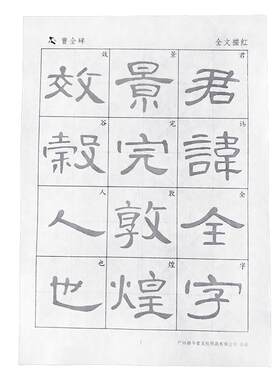 曹全碑
全文描红
君諱全字
君讳全字
景完敦煌
景完敦煌
效穀人也
效谷人也
1